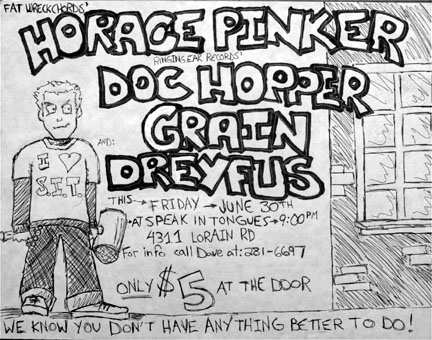 FAT WRECKCHORDS'
HORACE PINKER
RINGING EAR RECORDS'
DOC HOPPER
GRAIN
AND:
DREYFUS
I ♥
S.I.T.
THIS → FRIDAY → JUNE 30TH
→ AT SPEAK IN TONGUES → 9:00 PM
4311 LORAIN RD
For info call Dave at: 281-6697
ONLY $5 AT THE DOOR
WE KNOW YOU DON'T HAVE ANYTHING BETTER TO DO!